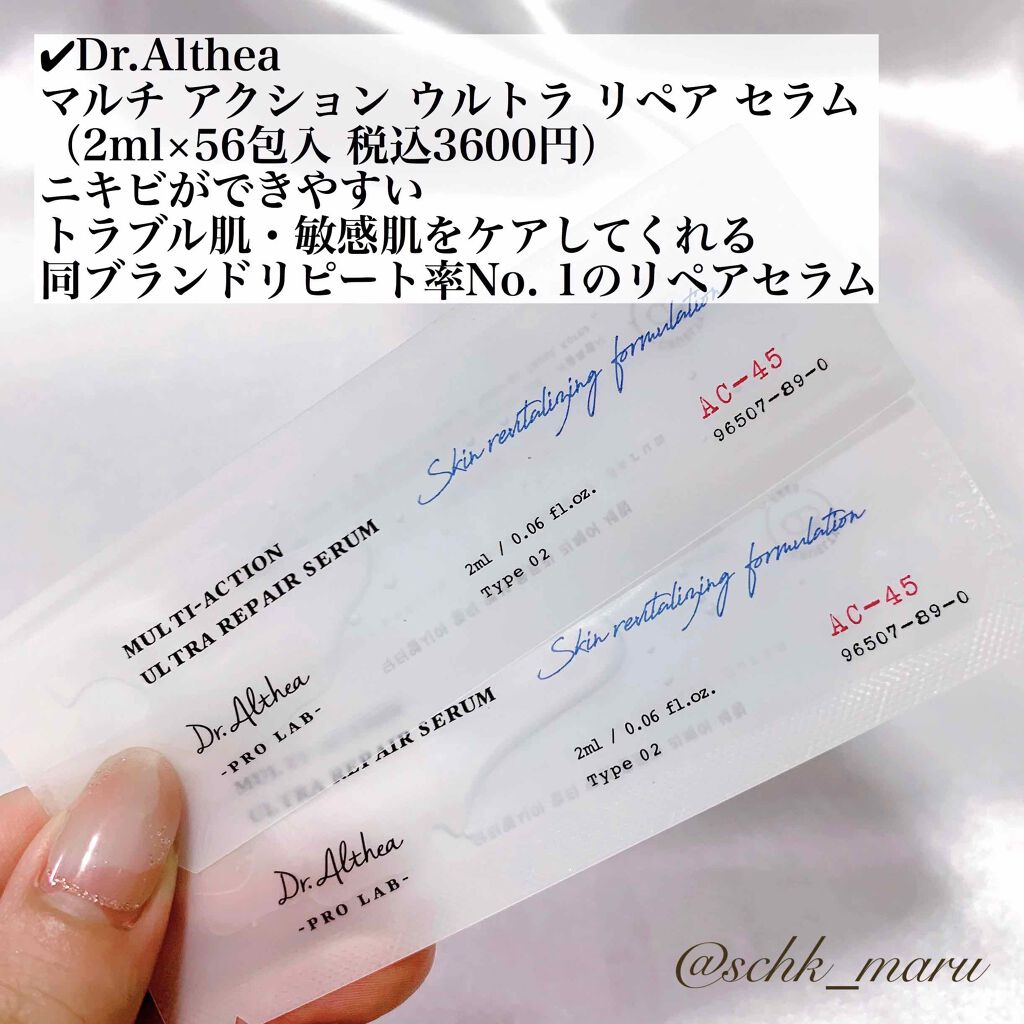 ✔Dr.Althea
マルチ アクション ウルトラ リペア セラム
（2ml×56包入 税込3600円）
ニキビができやすい
トラブル肌・敏感肌をケアしてくれる
同ブランドリピート率No. 1のリペアセラム
Skin revitalizing formulation
AC-45
96507-89-0
2ml / 0.06 fl.oz.
Type 02
MULTI-ACTION
ULTRA REPAIR SERUM
Dr.Althea
-PRO LAB-
Skin revitalizing formulation
AC-45
96507-89-0
2ml / 0.06 fl.oz.
Type 02
ULTRA REPAIR SERUM
Dr.Althea
-PRO LAB-
@schk_maru